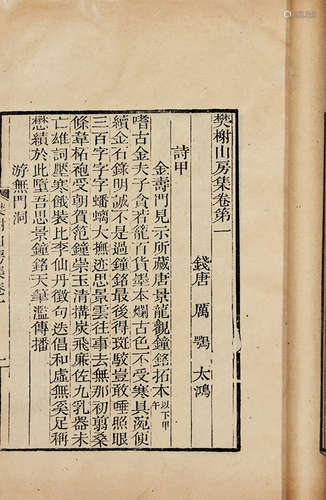 樊榭山房集卷第一
錢唐 厲鶚 太鴻
詩甲
金壽門見示所藏唐景龍觀鐘銘拓本以下甲午
嗜古金夫子貪若籠百貨墨本爛古色不受寒具涴便
續金石錄明誠不是過鐘銘最後得斑駁豈敢唾照眼
三百字字字蟠璃大撫迹思景雲往事去無那初翦桑
條韋柘袍受朝賀范鐘崇玉清搆炭飛廉佐九乳器未
亡雄詞壓寒餓裝比李仙丹徵句迭倡和虛無奚足稱
懋績於此墮吾思景鐘銘天筆濫傳播
游無門洞